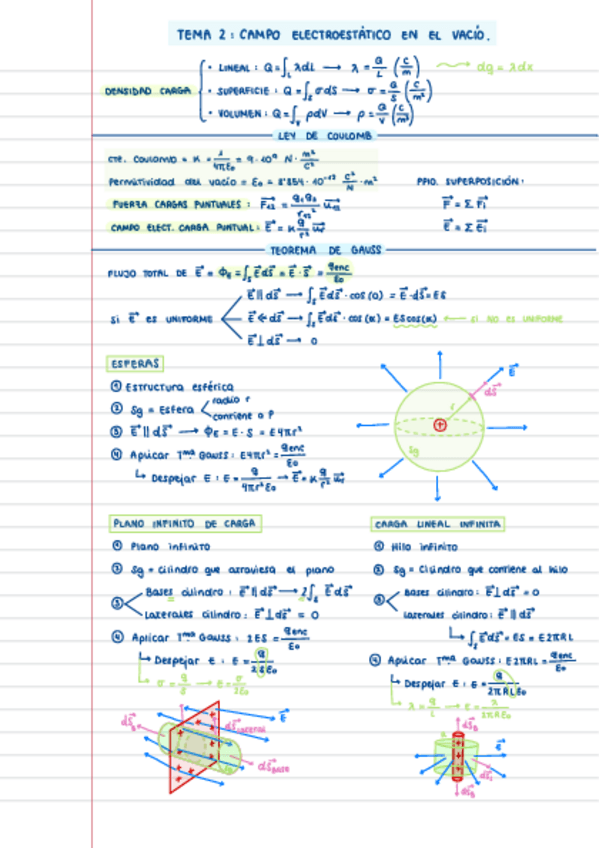 TEMA 2: CAMPO ELECTROESTÁTICO EN EL VACÍO.
DENSIDAD CARGA
• LINEAL: Q=∫L λdL → λ = Q/L (C/m) dq = λdx
• SUPERFICIE: Q=∫S σdS → σ = Q/S (C/m²)
• VOLUMEN: Q=∫V ρdV → ρ = Q/V (C/m³)
LEY DE COULOMB
cte. Coulomb = K = 1/4πε₀ = 9·10⁹ N·m²/C²
Permitividad del vacío = ε₀ = 8'854·10⁻¹² C²/N·m² PPIO. SUPERPOSICIÓN:
FUERZA CARGAS PUNTUALES: F⃗₁₂ = q₁q₂/r₁₂² u⃗₁₂ F⃗ = Σ F⃗i
CAMPO ELECT. CARGA PUNTUAL: E⃗ = K q/r² u⃗r E⃗ = Σ E⃗i
TEOREMA DE GAUSS
FLUJO TOTAL DE E⃗ = ΦE = ∫S E⃗dS⃗ = E⃗·S⃗ = qenc/ε₀
Si E⃗ es UNIFORME
E⃗ ∥ dS⃗ → ∫S E⃗dS⃗·cos(0) = E⃗·dS⃗ = ES
E⃗ ∢ dS⃗ → ∫S E⃗dS⃗·cos(α) = EScos(α) ← SI NO ES UNIFORME
E⃗ ⊥ dS⃗ → 0
ESFERAS
① Estructura esférica
② Sg = Esfera < radio r
contiene a P
③ E⃗ ∥ dS⃗ → ΦE = E·S = E4πr²
④ Aplicar Tma Gauss: E4πr² = qenc/ε₀
↳ Despejar E: E = q/4πr²ε₀ → E⃗ = K q/r² u⃗r
E⃗
dS⃗
r
+
Sg
PLANO INFINITO DE CARGA
① Plano infinito
② Sg = cilindro que atraviesa el plano
③ Bases cilindro: E⃗ ∥ dS⃗ → 2∫S E⃗dS⃗
Laterales cilindro: E⃗ ⊥ dS⃗ = 0
④ Aplicar Tma Gauss: 2ES = qenc/ε₀
↳ Despejar E: E = q/2Sε₀
↳ σ = q/S → E = σ/2ε₀
dS⃗B
dS⃗lateral
E⃗
dS⃗BASE
CARGA LINEAL INFINITA
① Hilo infinito
② Sg = Cilindro que contiene al hilo
③ Bases cilindro: E⃗ ⊥ dS⃗ = 0
Laterales cilindro: E⃗ ∥ dS⃗
↳ ∫S E⃗dS⃗ = ES = E2πRL
④ Aplicar Tma Gauss: E2πRL = qenc/ε₀
↳ Despejar E: E = q/2πRLε₀
↳ λ = q/L → E = λ/2πRε₀
dS⃗B
E⃗
dS⃗L
dS⃗B